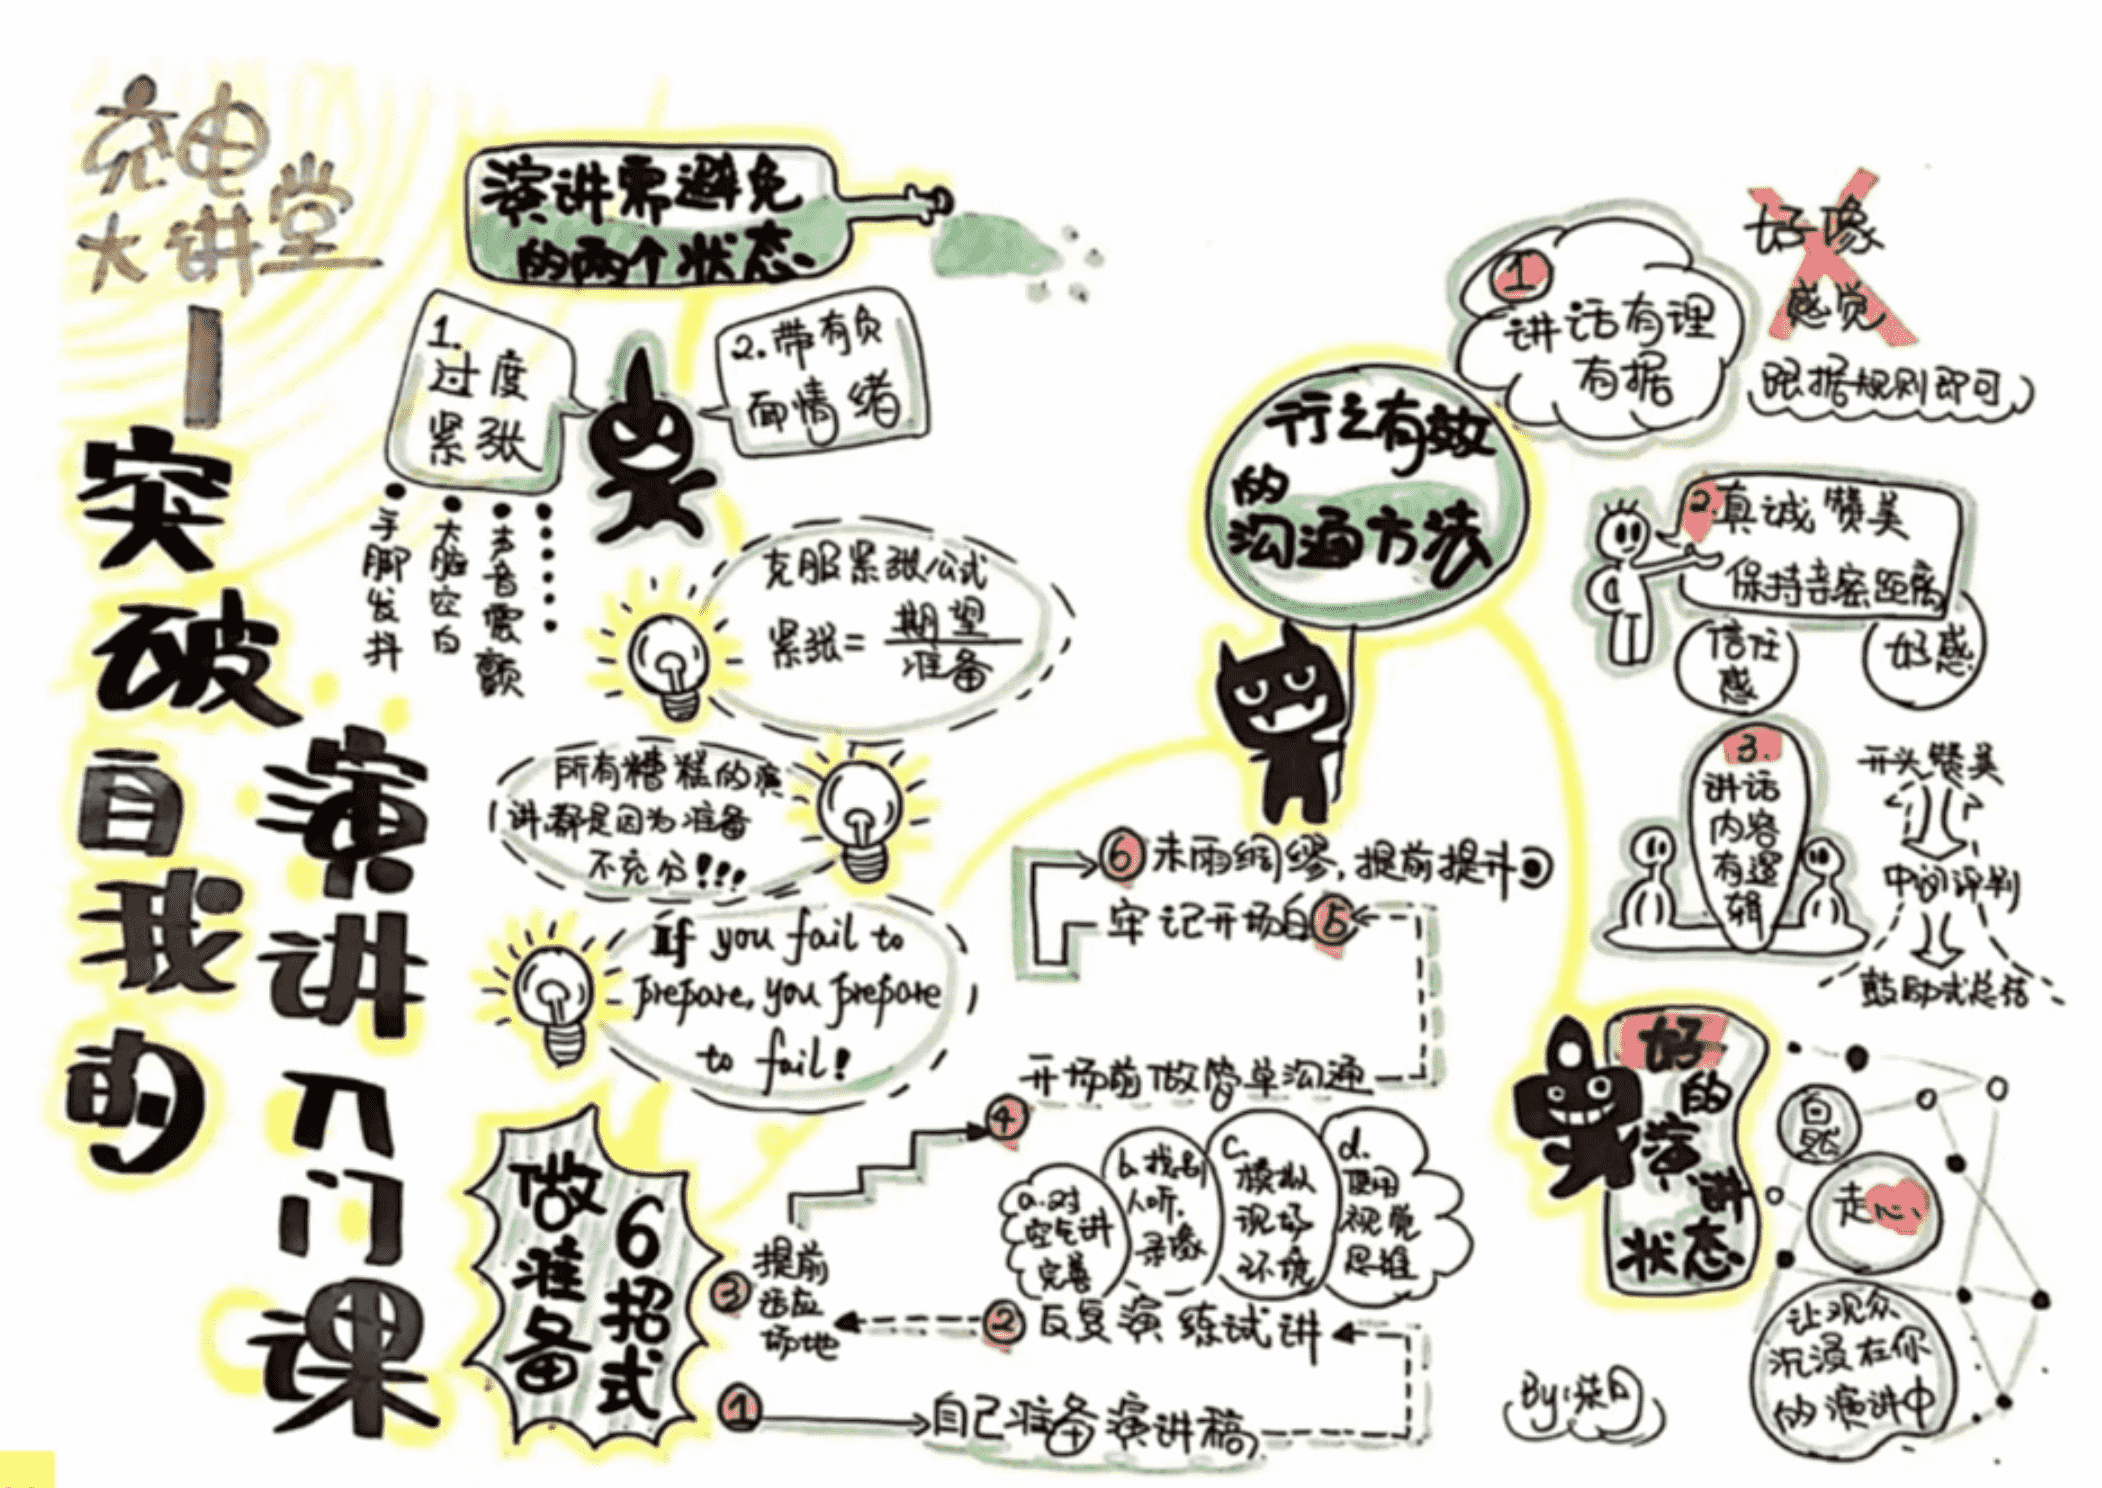 充电
大讲堂
突破
自我
的
演讲
入门
课
演讲需避免
的两个状态
1.
过度
紧张
2.带有负
面情绪
手脚发抖
大脑空白
声音震颤
......
克服紧张公式
紧张=期望
准备
所有糟糕的演
讲都是因为准备
不充分!!!
If you fail to
prepare, you prepare
to fail!
做准备
6招式
1
自己准备演讲稿
2 反复演练试讲
a.对
空气讲
完善
b.找别
人听,
录像
c.
模拟
现场
环境
d.
使用
视觉
思维
3
提前
适应
场地
4
开场前做简单沟通
牢记开场白 5
6 未雨绸缪,提前提升
行之有效
的
沟通方法
1
讲话有理
有据
好像
感觉
跟据规则即可
2.真诚赞美
保持亲密距离
信任
感
好感
3.
讲话
内容
有逻
辑
开头赞美
中间评判
鼓励式总结
好
的
演讲
状态
自然
走心
让观众
沉浸在你
的演讲中